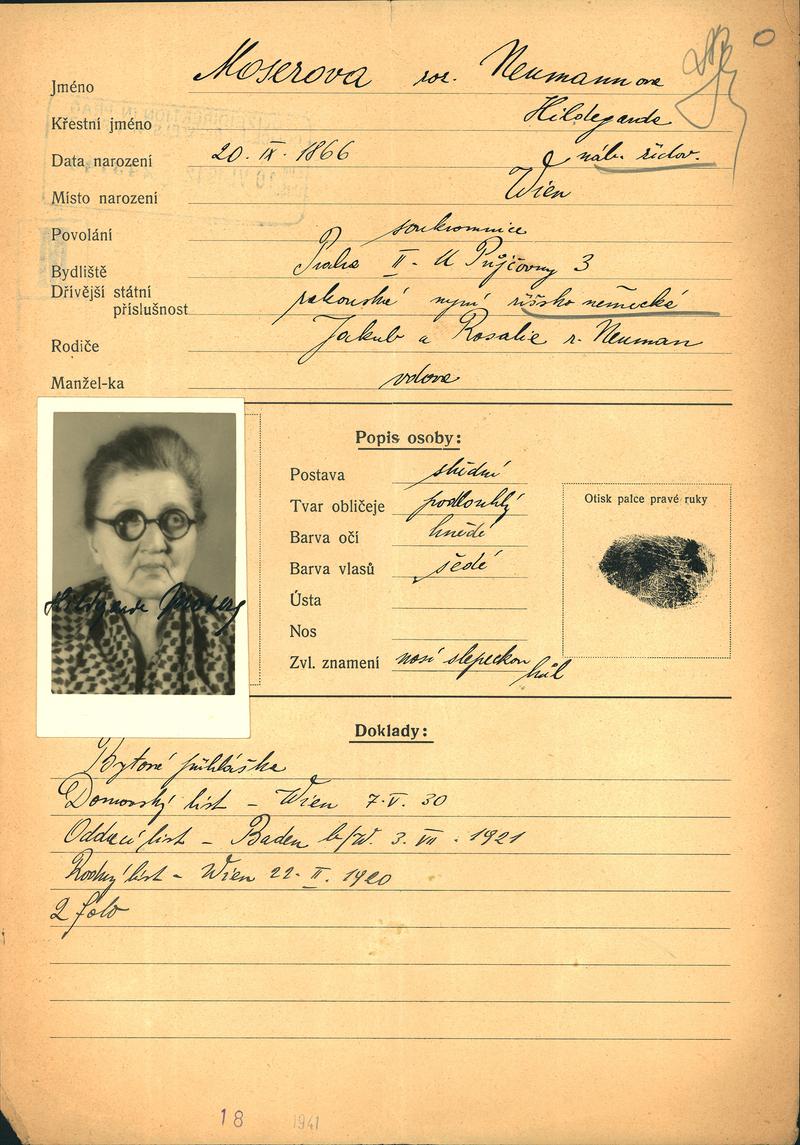 Jméno Moserova roz. Neumannova
Křestní jméno Hildegarda
Data narození 20. IX. 1866 náb. židov.
Místo narození Wien
Povolání soukromnice
Bydliště Praha II - U Půjčovny 3
Dřívější státní
příslušnost rakouská nyní říšsko německá
Rodiče Jakub a Rosalie r. Neuman
Manžel-ka vdova
Popis osoby:
Postava střední
Tvar obličeje podlouhlý
Barva očí hnědé
Barva vlasů šedé
Ústa
Nos
Zvl. znamení nosí slepeckou
hůl
Otisk palce pravé ruky
Hildegarde Moser
Doklady:
Bytové přihláška
Domovský list - Wien 7.V. 30
Oddací list - Baden b/W. 3. VII. 1921
Rodný list - Wien 22. II. 1920
2 foto
18 1941